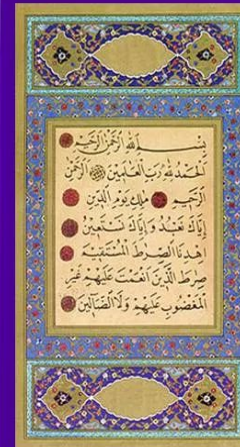 بِسْمِ اللهِ الرَّحْمٰنِ الرَّحِيْمِ
اَلْحَمْدُ لِلّٰهِ رَبِّ الْعَالَمِيْنَ اَلرَّحْمٰنِ
الرَّحِيْمِ مٰلِكِ يَوْمِ الدِّيْنِ
اِيَّاكَ نَعْبُدُ وَاِيَّاكَ نَسْتَعِيْنُ
اِهْدِنَا الصِّرَاطَ الْمُسْتَقِيْمَ
صِرَاطَ الَّذِيْنَ اَنْعَمْتَ عَلَيْهِمْ غَيْرِ
الْمَغْضُوْبِ عَلَيْهِمْ وَلَا الضَّالِّيْنَ